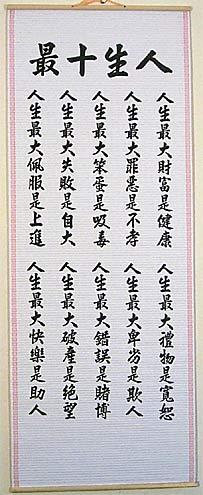 人生十最
人生最大財富是健康
人生最大罪惡是不孝
人生最大笨蛋是吸毒
人生最大失敗是自大
人生最大佩服是上進
人生最大禮物是寬恕
人生最大卑劣是欺人
人生最大錯誤是賭博
人生最大破產是絕望
人生最大快樂是助人